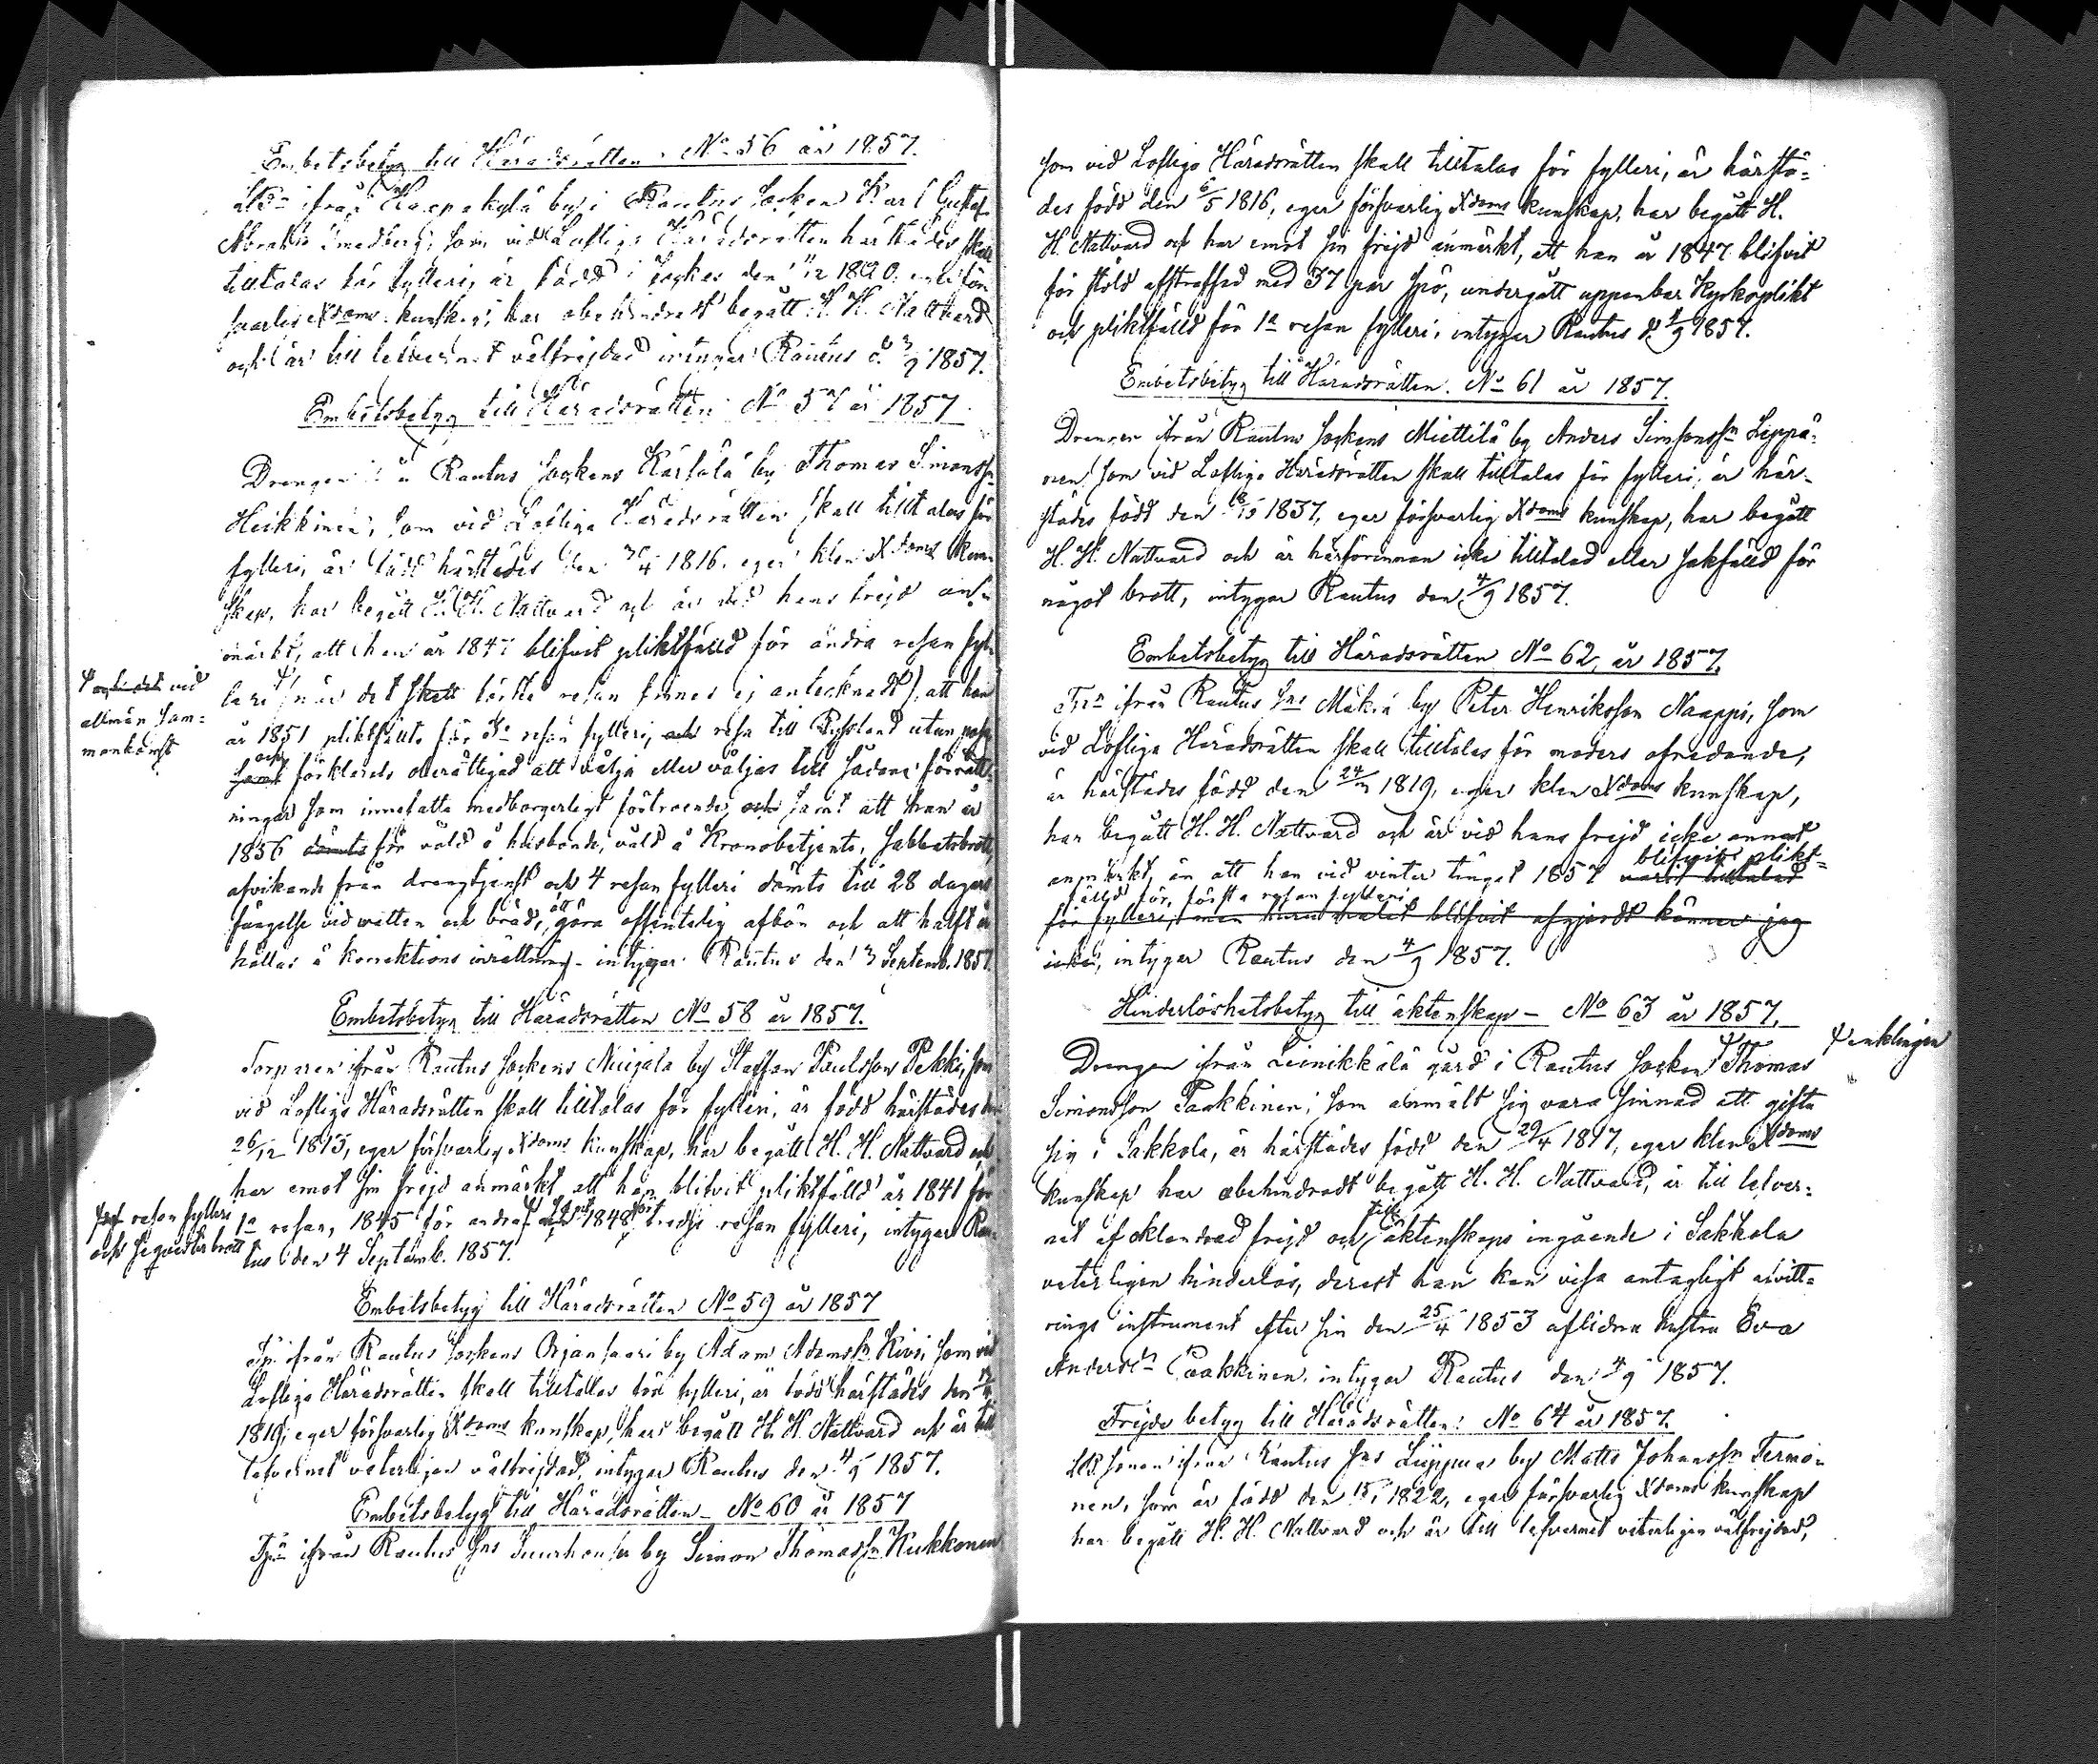 Embetsbetyg till Häradsrätten. No 56 år 1857.
ifrån Haapakylä by i Rautus Socken Karl Gustaf
Abrahs Smedberg, som vid Lofliga Häradsrätten härstädes skall
tilltalas för fylleri, är född i Socken den 1820. eger för
svarlig Xdoms kunskap, har obehindradt begått H. H. Nattvard
och är till lefvernet välfrejdad intygar Rautus d. 3/9 1857.
Embetsbetyg till Häradsrätten No 57 år 1857
Drengen i från Rautus Sockens Kärsälä by Thomas Simonssn
Heikkinen, som vid Lofliga Häradsrätten skall tilltalas för
fylleri, är född härstädes den 1816. eger klen Xdoms kun-
skap, har begått H. H. Nattvard och är vid hans frejd an-
märkt, att han år 1847 blifvit pliktfälld för andra resan fyl-
leri (när det skett första resan finnes ej antecknadt), att han
år 1851 pliktfällts för 3e resan fylleri, och resa till Ryssland utan pass
samt och förklarads oberättigad att välja eller väljas till sådane förrätt-
ningar som innefatta medborgerligt förtroende, och samt att han år
1856 dömts för våld å husbonde, våld å Kronobetjente, Sabbatsbrott,
afvikande från drengtjenst och 4 resan fylleri dömts till 28 dagars
fängelse vid vatten och bröd, att göra offentelig afbön och att halft år
hållas å korrektions inrättning - intygar Rautus den 3 Septemb. 1857.
och det vid
allmän sam-
mankomst
Embetsbetyg till Häradsrätten No 58 år 1857.
Torparen ifrån Rautus Sockens Nuijala by Staffan Paulsson Pekki, som
vid Lofliga Häradsrätten skall tilltalas för fylleri, är född härstädes den
26/12 1813, eger försvarlig Xdoms kunskap, har begått H. H. Nattvard och
har emot sin frejd anmärkt att han blifvit pliktfälld år 1841 för
1a resan, 1845 för andra och samt 1848 för tredje resan fylleri, intygar Rau-
tus den 4 Septemb. 1857.
resan fylleri
och Sqvalterbrott
Embetsbetyg till Häradsrätten No 59 år 1857
ifrån Rautus Sockens Orjansaari by Adam Adamssn Kivi, som vid
Lofliga Häradsrätten skall tilltalas för fylleri, är född härstädes den
1819, eger försvarlig Xdoms kunskap, har begått H. H. Nattvard och är till
lefvernet veterligen välfrejdad, intygar Rautus den 4/9 1857.
Embetsbetyg till Häradsrätten - No 60 år 1857
ifrån Rautus Sns Suurhousu by Simon Thomassn Kukkonen
som vid Lofliga Häradsrätten skall tilltalas för fylleri, är härstä-
des född den 6/5 1816, eger försvarlig Xdoms kunskap, har begått H.
H. Nattvard och har emot sin frejd anmärkt, att han år 1847 blifvit
för stöld afstraffad med 37 par spö, undergått uppenbar Kyrkoplikt
och pliktfälld för 1a resan fylleri, intygar Rautus d. 4/9 1857.
Embetsbetyg till Häradsrätten. No 61 år 1857.
Drengen ifrån Rautus Sockens Miettilä by Anders Simonssn Leppä-
nen som vid Lofliga Häradsrätten skall tilltalas för fylleri, är här-
städes född den 1837, eger försvarlig Xdoms kunskap, har begått
H. H. Nattvard och är härförinnan icke tilltalad eller sakfälld för
något brott, intygar Rautus den 4/9 1857.
Embetsbetyg till Häradsrätten No 62, år 1857.
ifrån Rautus Sns Mäkrä by Peter Henriksson Naappi, som
vid Lofliga Häradsrätten skall tilltalas för moders ofredande,
är härstädes född den 1819, eger klen Xdoms kunskap,
har begått H. H. Nattvard och är vid hans frejd icke annat
anmärkt, än att han vid winter tinget 1857 varit tilltalad blifvit plikt-
fälld för första resan fylleri
för fylleri, men huru målet blifvit afgjordt känner jag
icke, intygar Rautus den 4/9 1857.
Hinderlöshetsbetyg till äktenskap - No 63 år 1857.
Drengen ifrån Leinikkälä gård i Rautus Socken Thomas
enklingen
Simonsson Paakkinen, som anmält sig vara sinnad att gifta
sig i Sakkola, är härstädes född den 29/4 1817, eger klen Xdoms
kunskap har obehindradt begått H. H. Nattvard, är till lefver-
net af oklandrad frejd och till äktenskaps ingående i Sakkola
veterligen hinderlös, derest han kan visa antagligt afvitt-
rings instrument efter sin den 25/4 1853 aflidna hustru Eva
Andersdr Paakkinen. intygar Rautus den 4/9 1857.
Frejde betyg till Häradsrätten. No 64 år 1857.
ifrån Rautus Sns Leppua by Matts Johanssn Termo-
nen, som är född den 1822, eger försvarlig Xdoms kunskap
har begått H. H. Nattvard och är till lefvernet veterligen välfrejdad,